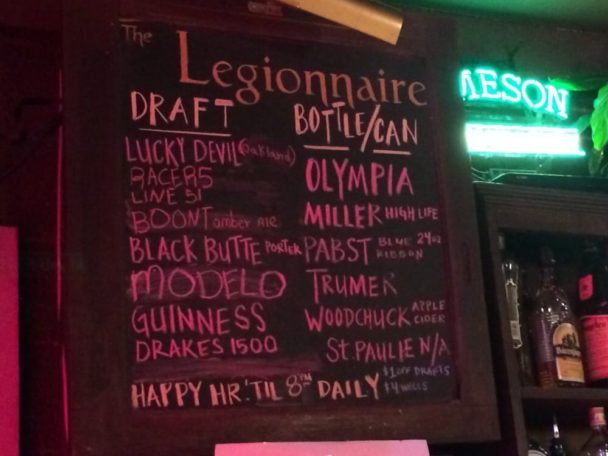 The
Legionnaire
DRAFT
LUCKY DEVIL (oakland)
RACER 5
LINE 51
BOONT amber ALE
BLACK BUTTE PORTER
MODELO
GUINNESS
DRAKES 1500
BOTTLE/CAN
OLYMPIA
MILLER HIGH LIFE
PABST BLUE RIBBON 24oz
TRUMER
WOODCHUCK APPLE CIDER
ST. PAULIE N/A
HAPPY HR. 'TIL 8PM DAILY
$1 OFF DRAFTS
$4 WELLS
MESON